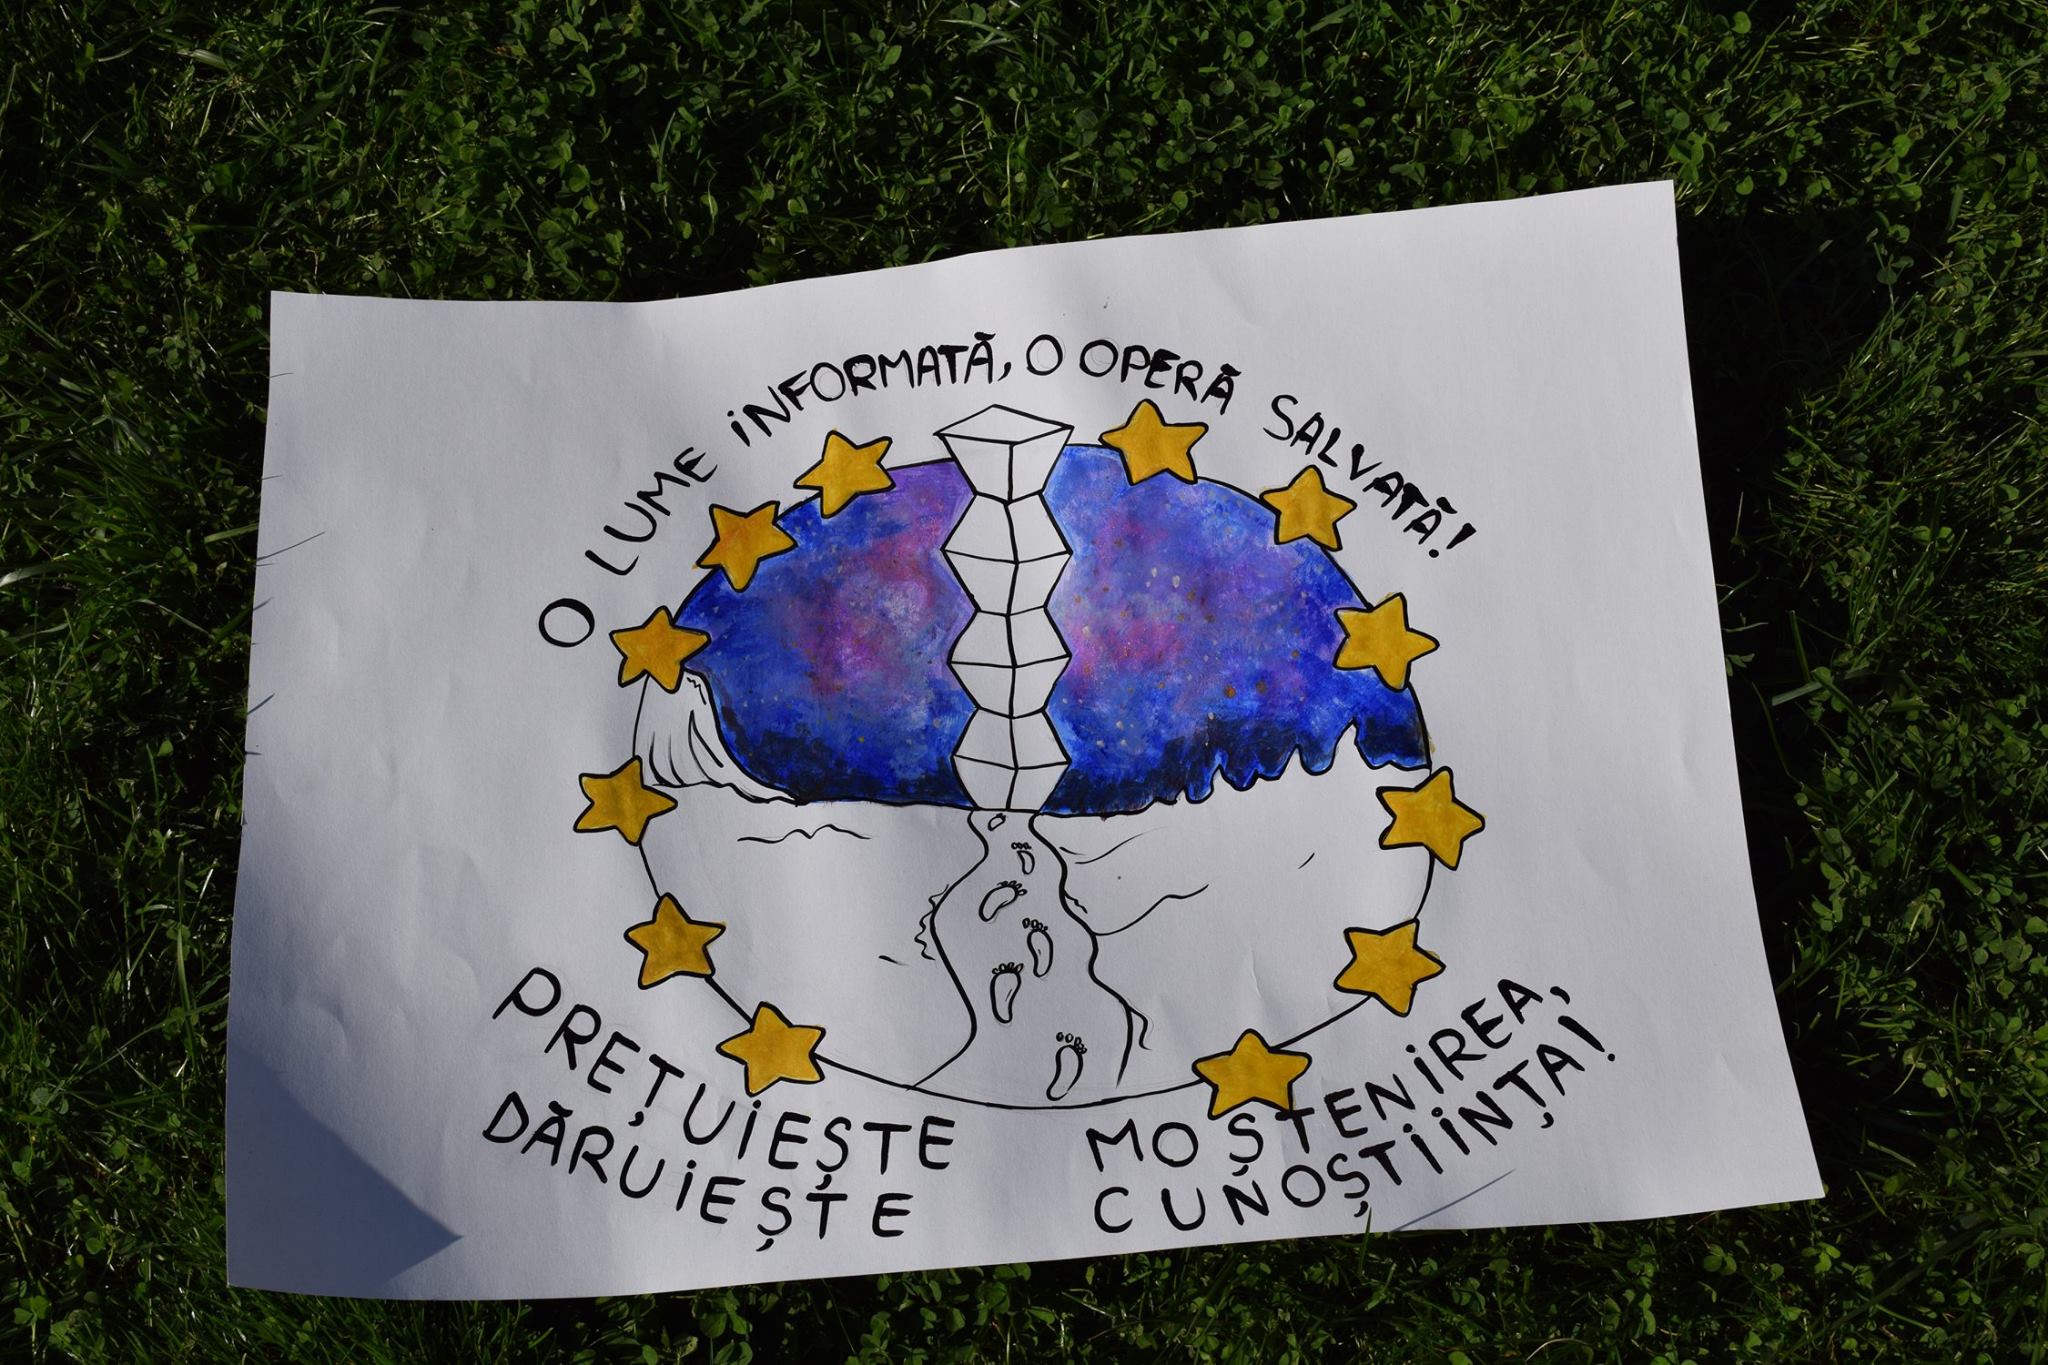 O LUME INFORMATĂ, O OPERĂ SALVATĂ!
PREȚUIEȘTE MOȘTENIREA,
DĂRUIEȘTE CUNOȘTIINȚA!